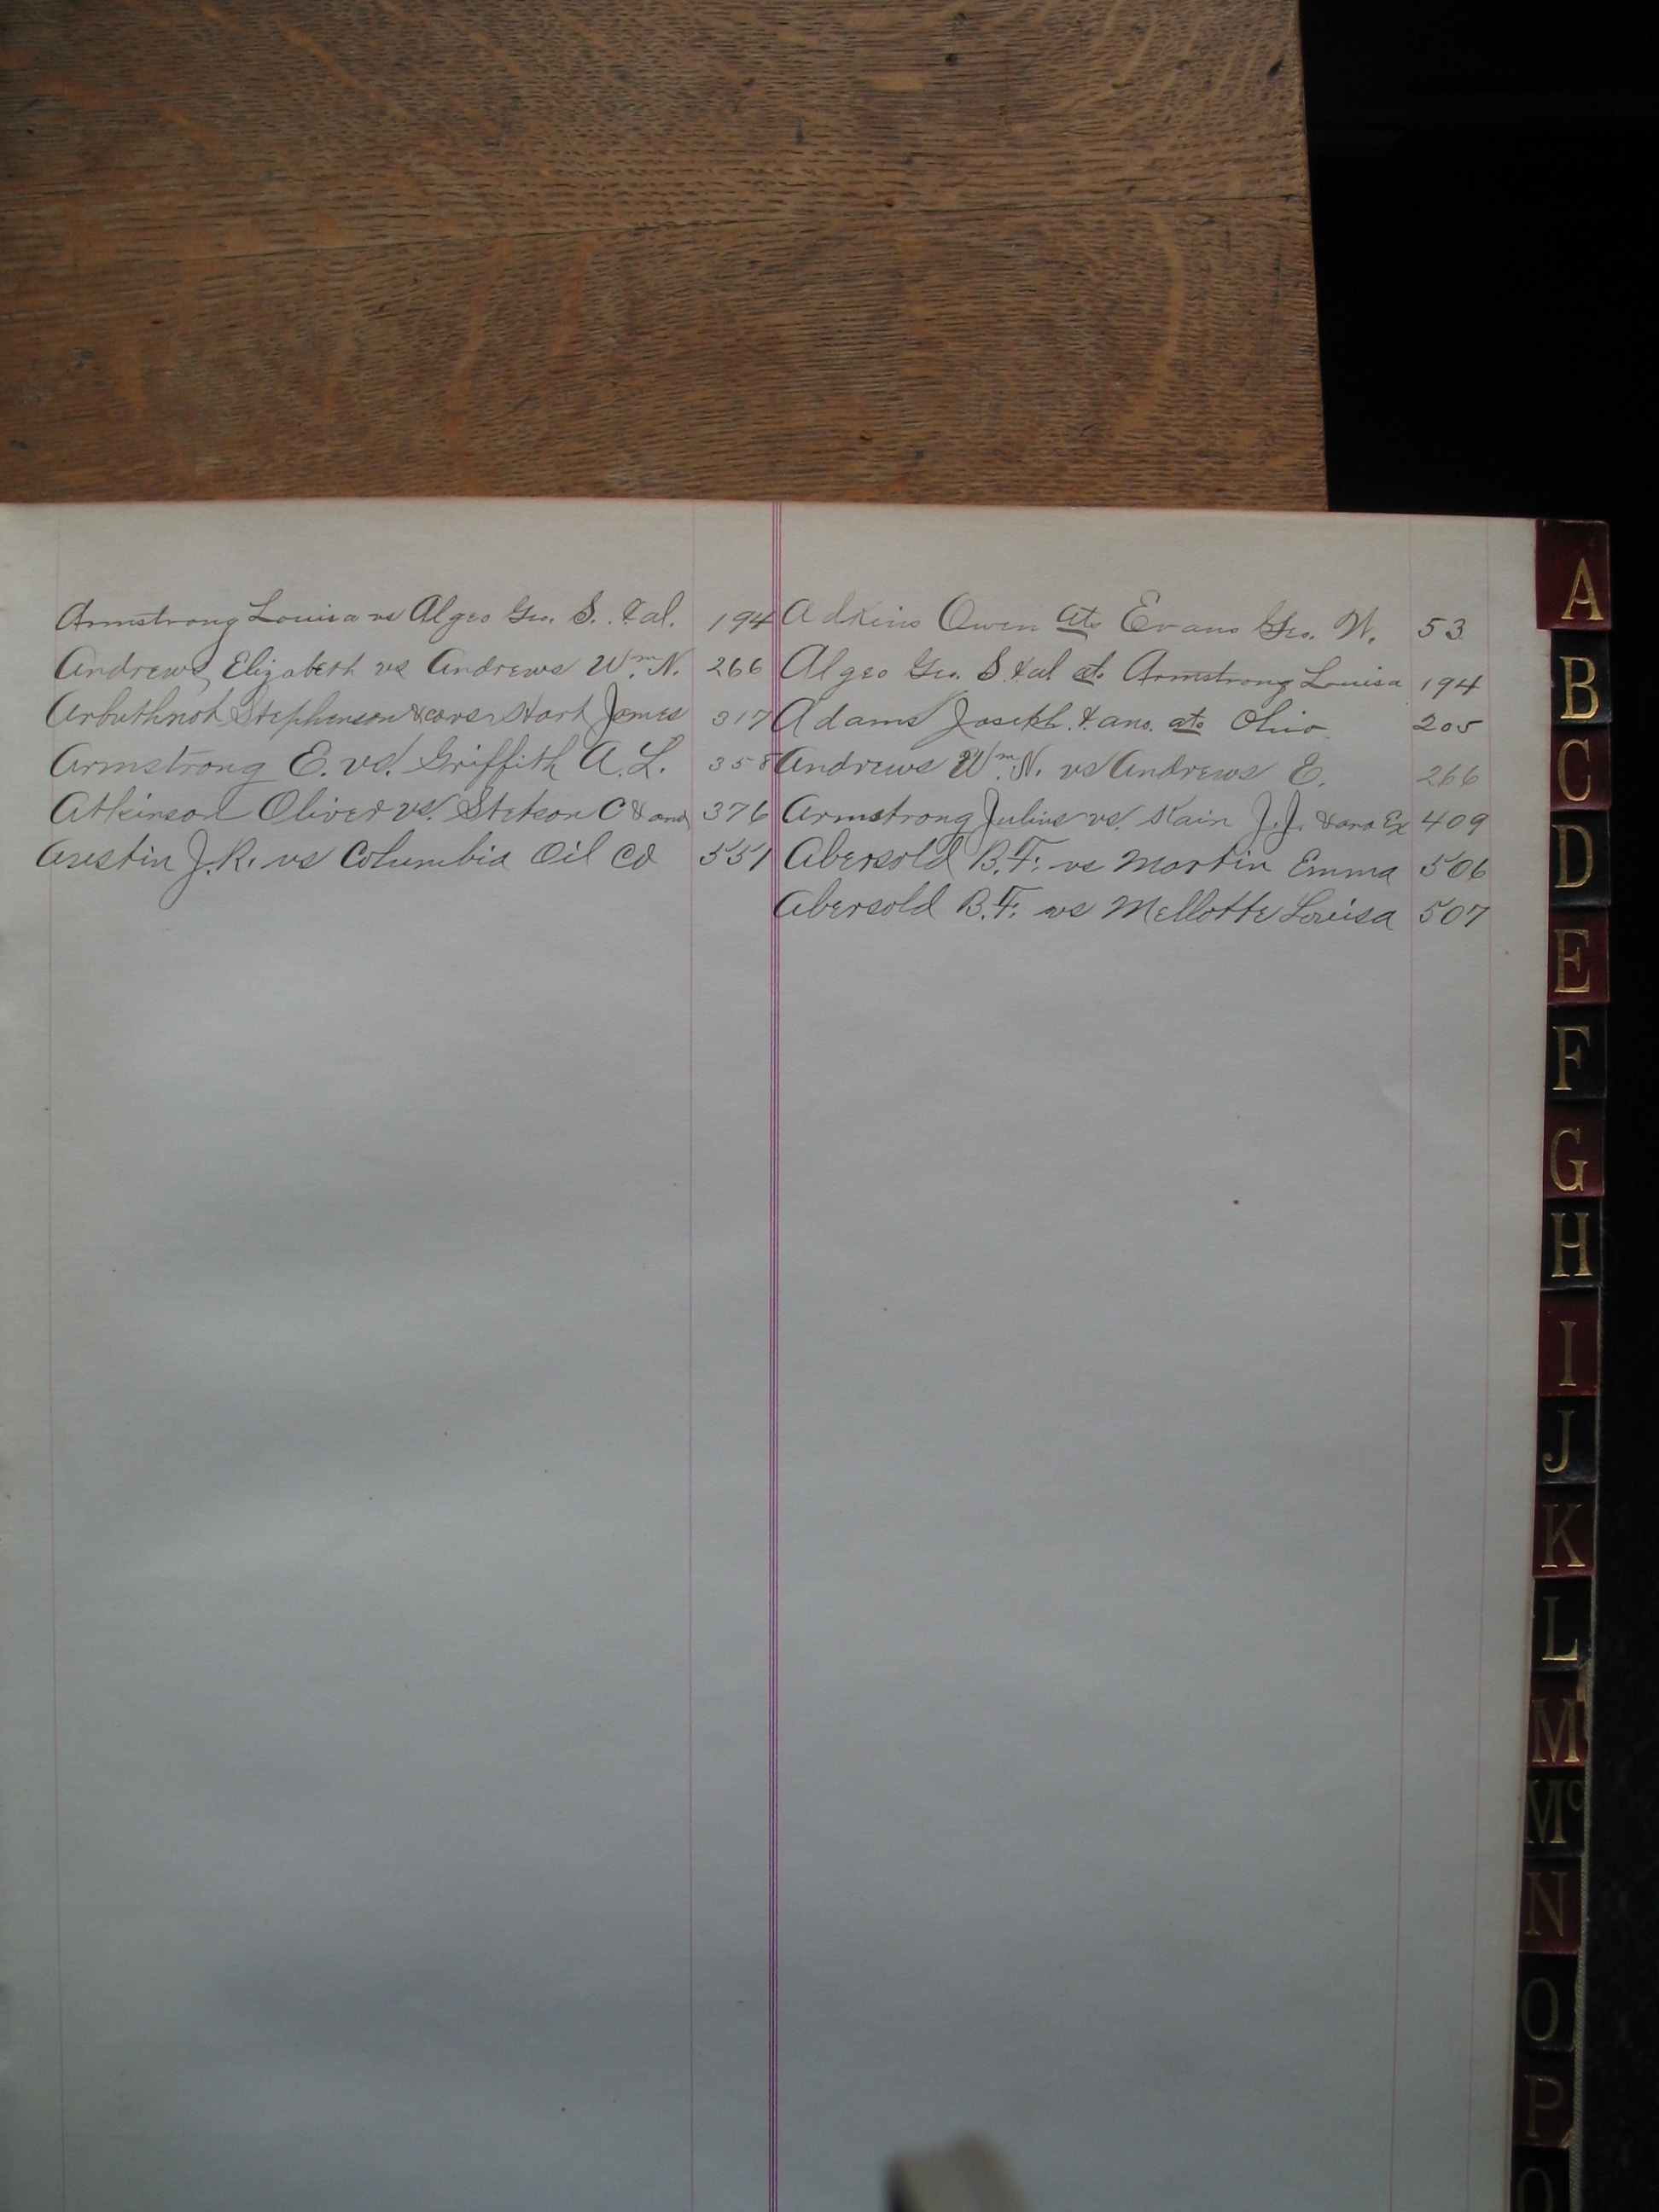 Armstrong Louisa vs Algeo Geo. S. &al. 194
Andrews, Elizabeth vs Andrews Wm. N. 266
Arbuthnot Stephenson & co vs Hart James 317
Armstrong E. vs. Griffith A. L. 358
Atkinson Oliver vs. Stetson C & ano 376
Austin J. R. vs Columbia Oil Co 551
Adkins Owen ats Evans Geo. W. 53
Algeo Geo. S &al ats Armstrong Louisa 194
Adams Joseph & ano. ats Ohio 205
Andrews Wm. N. vs Andrews E. 266
Armstrong Julius vs. Kain J. J. & ano Ex 409
Abersold B. F. vs Martin Emma 506
Abersold B. F. vs Mellotte Louisa 507
A
B
C
D
E
F
G
H
I
J
K
L
M
Mc
N
O
P